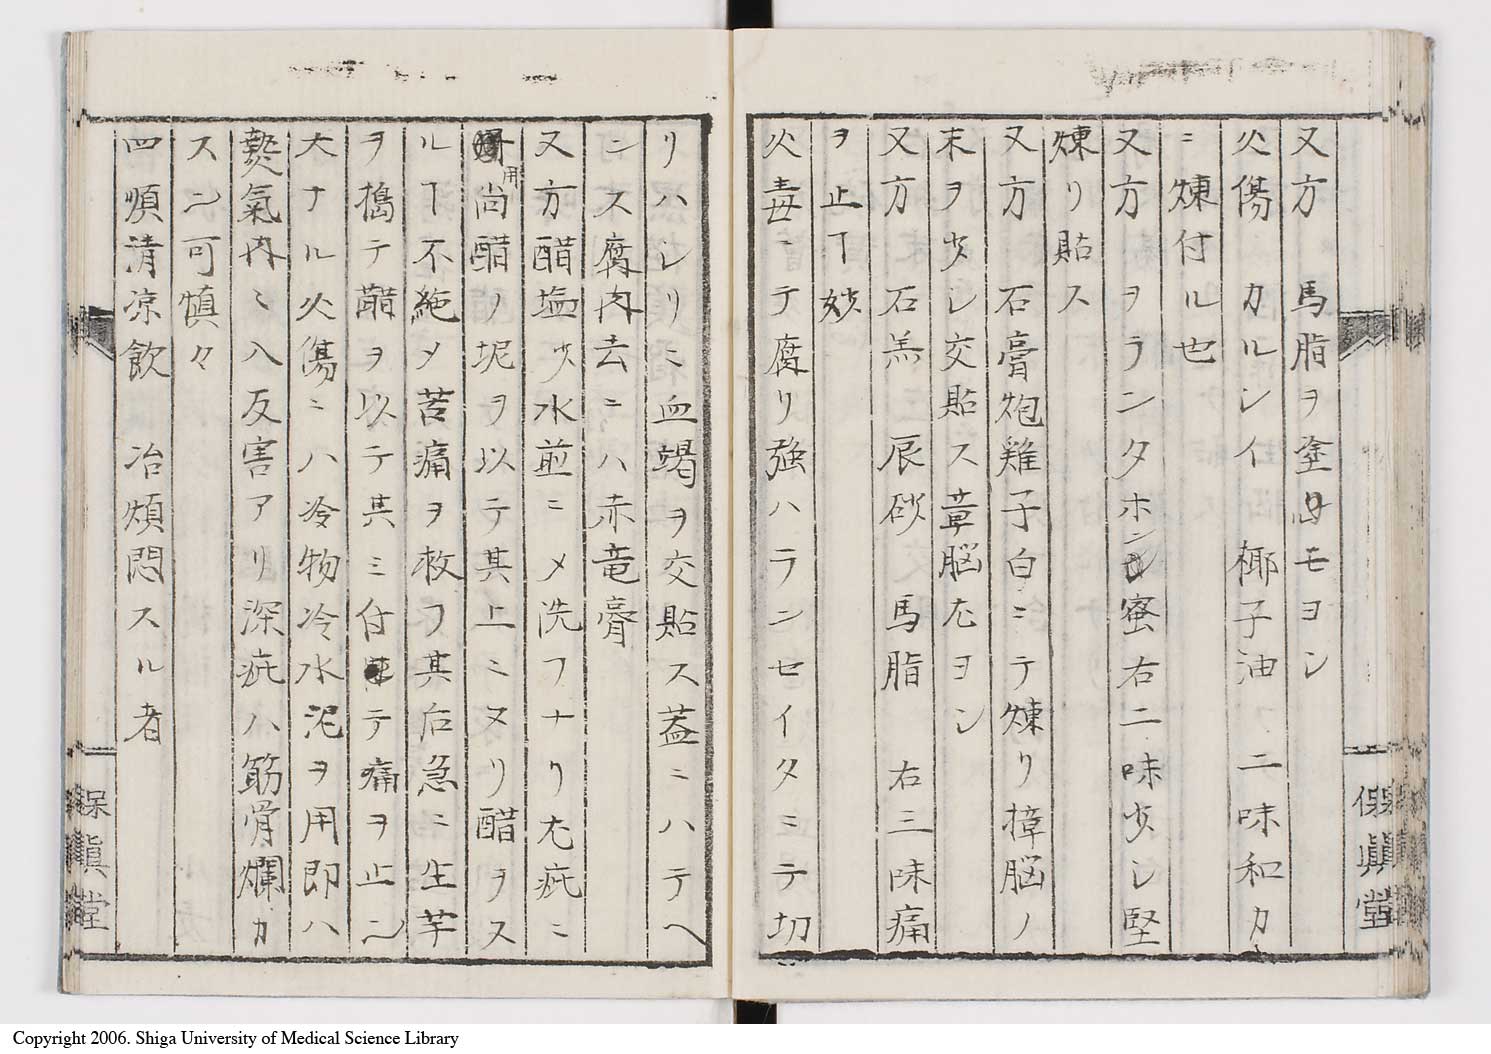 又方 馬脂ヲ塗ルモヨシ
火傷 カルシイ 椰子油 二味和カ
ニ煉付ル也
又方ヲランタホンシ蜜右二味少シ堅
煉リ貼ス
又方 石膏炮雞子白ニテ煉リ樟脳ノ
末ヲ少シ交貼ス章脳尤ヨシ
又方 石羔 辰砂 馬脂 右三味痛
ヲ止ヿ妙
火毒ニテ腐リ強ハランセイタミテ切
リハシリニ血竭ヲ交貼ス蓋ニハテヘ
シス腐肉去ニハ赤竜膏
又方醋塩少水煎ニメ洗フナリ尤疵ニ
用尚醋ノ坭ヲ以テ其上ニヌリ醋ヲス
ルヿ不絶メ苦痛ヲ救フ其后急ニ生芋
ヲ搗テ醋ヲ以テ其ミ付テ痛ヲ止シ
大ナル火傷ニハ冷物冷水泥ヲ用即ハ
熱氣内ニ入反害アリ深疵ハ筋骨爛カ
スシ可慎々
四順清凉飲 治煩悶スル者
保眞堂
保眞堂
Copyright 2006. Shiga University of Medical Science Library